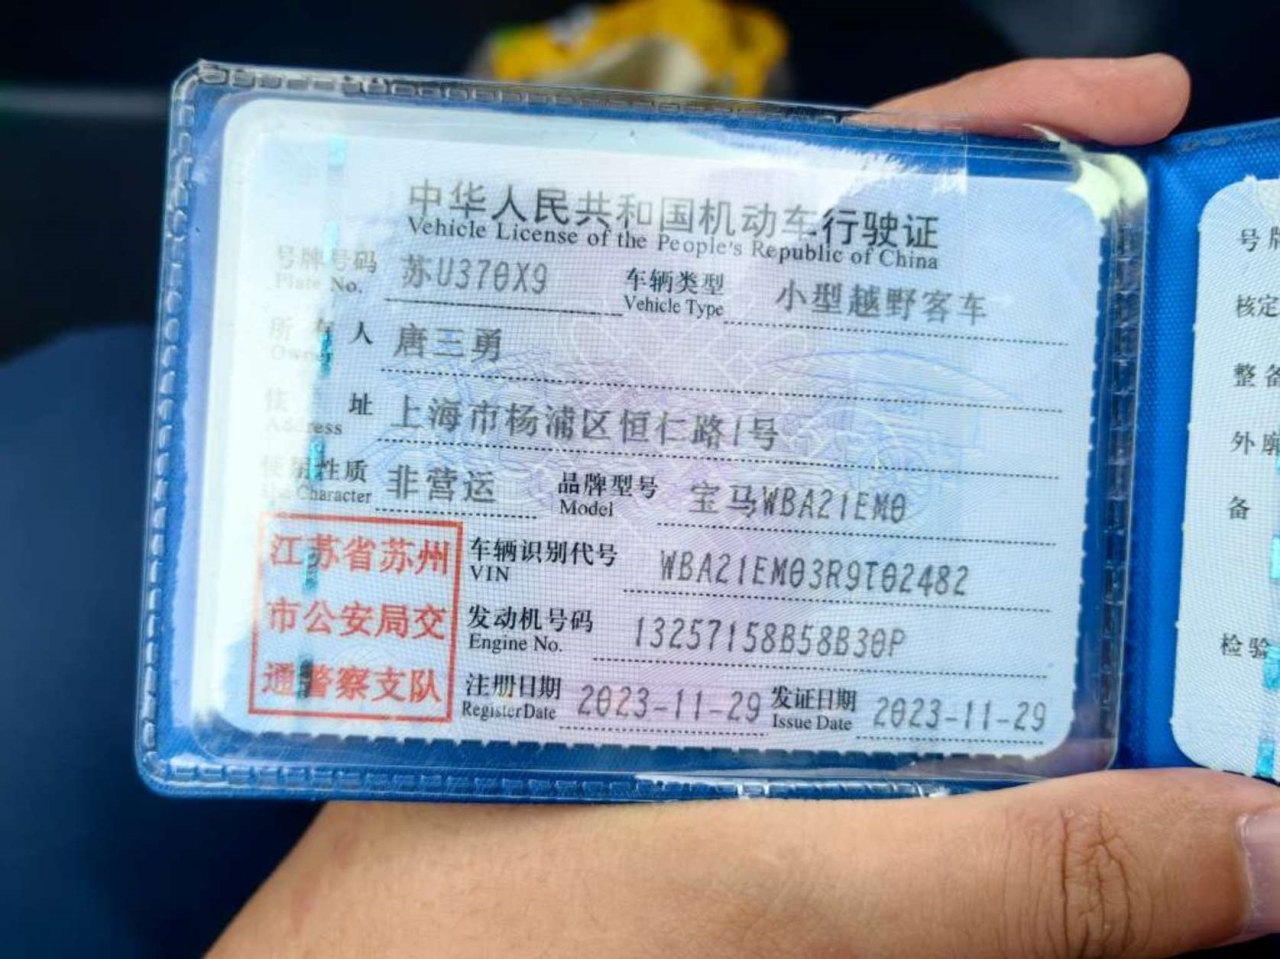 中华人民共和国机动车行驶证
Vehicle License of the People's Republic of China
号牌号码 苏U370X9 车辆类型 小型越野客车
Plate No. Vehicle Type
所有人 唐三勇
Owner
住址 上海市杨浦区恒仁路1号
Address
使用性质 非营运 品牌型号 宝马WBA21EM0
Character Model
江苏省苏州
市公安局交
通警察支队
车辆识别代号 WBA21EM03R9T02482
VIN
发动机号码 13257158B58B30P
Engine No.
注册日期 2023-11-29 发证日期 2023-11-29
Register Date Issue Date
号牌
核定
整备
外廓
备
检验